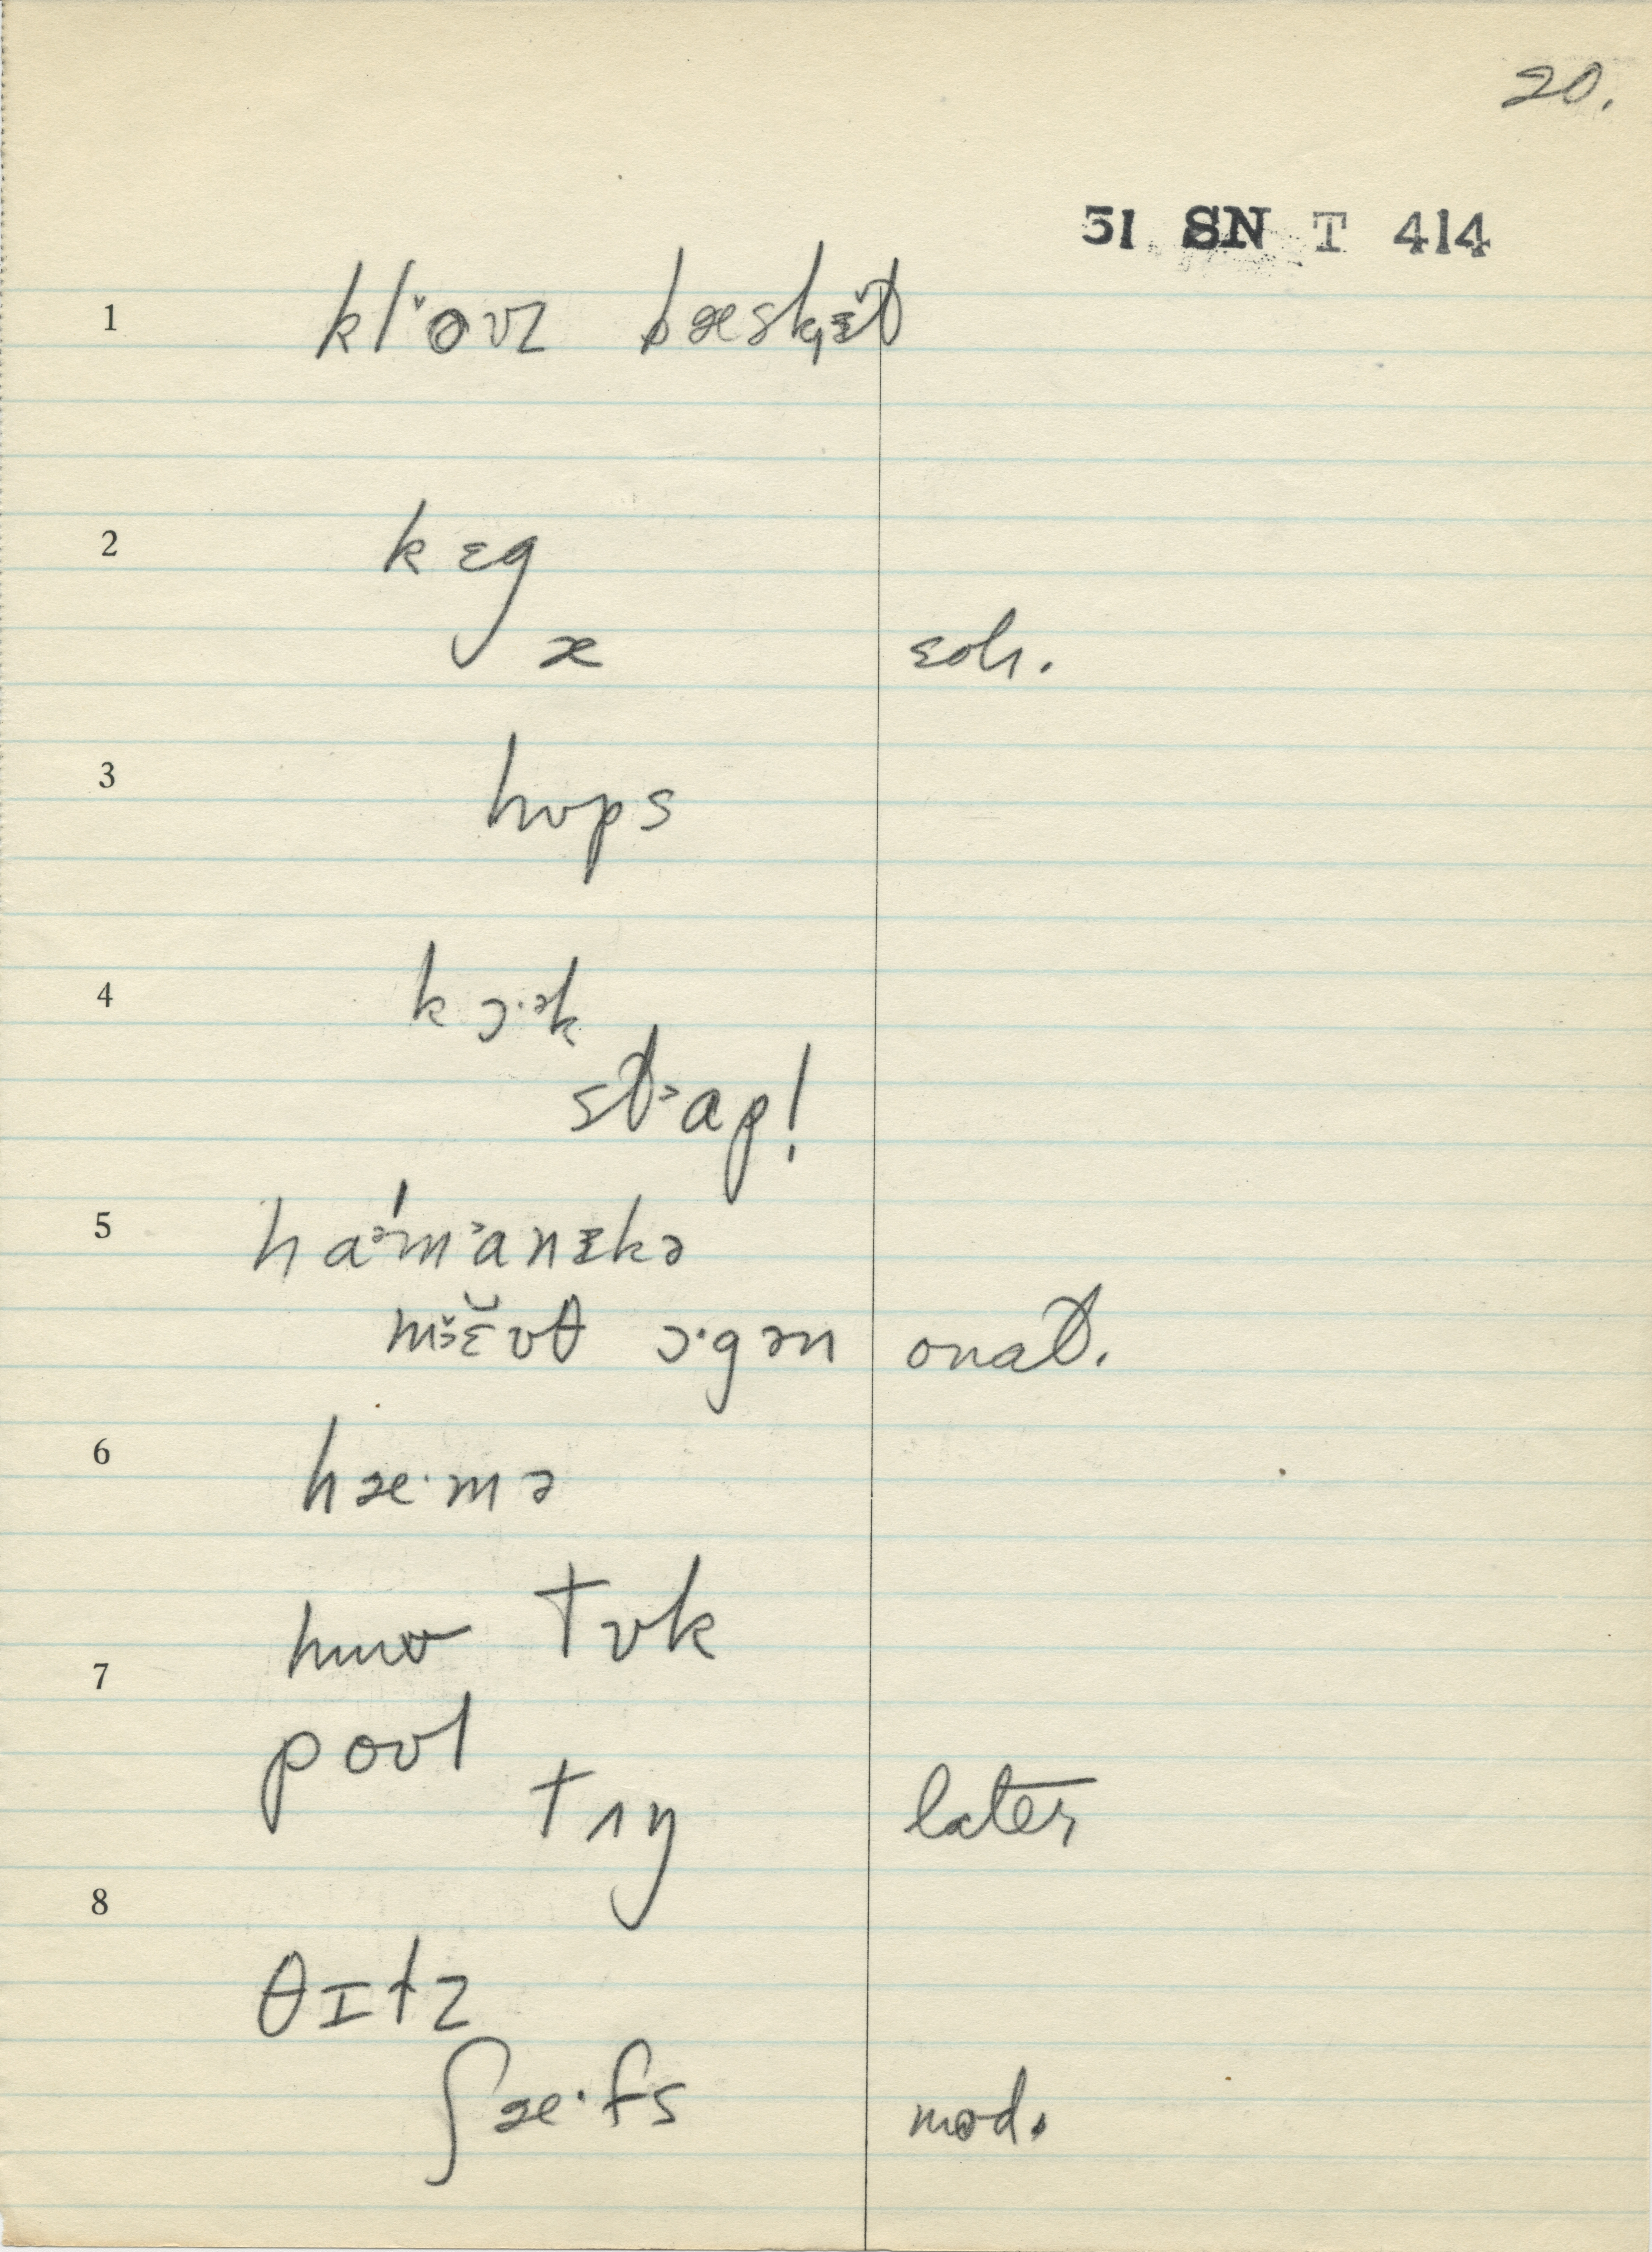 20.
51 SN T 414
1 klə̆ʊz bæskɪ̆t
2 kɛg
æ eoh.
3 hʊps
4 kɔ·ək
stᵊap!
5 haᵊ́mᵊanɪkə
mɜ̆ɛ̆ʊθ ɔ·gən onat.
6 hæ·mə
tʊk
7
poʊl
tʌŋ later
8
θɪtz
ʃæ·fs mod.